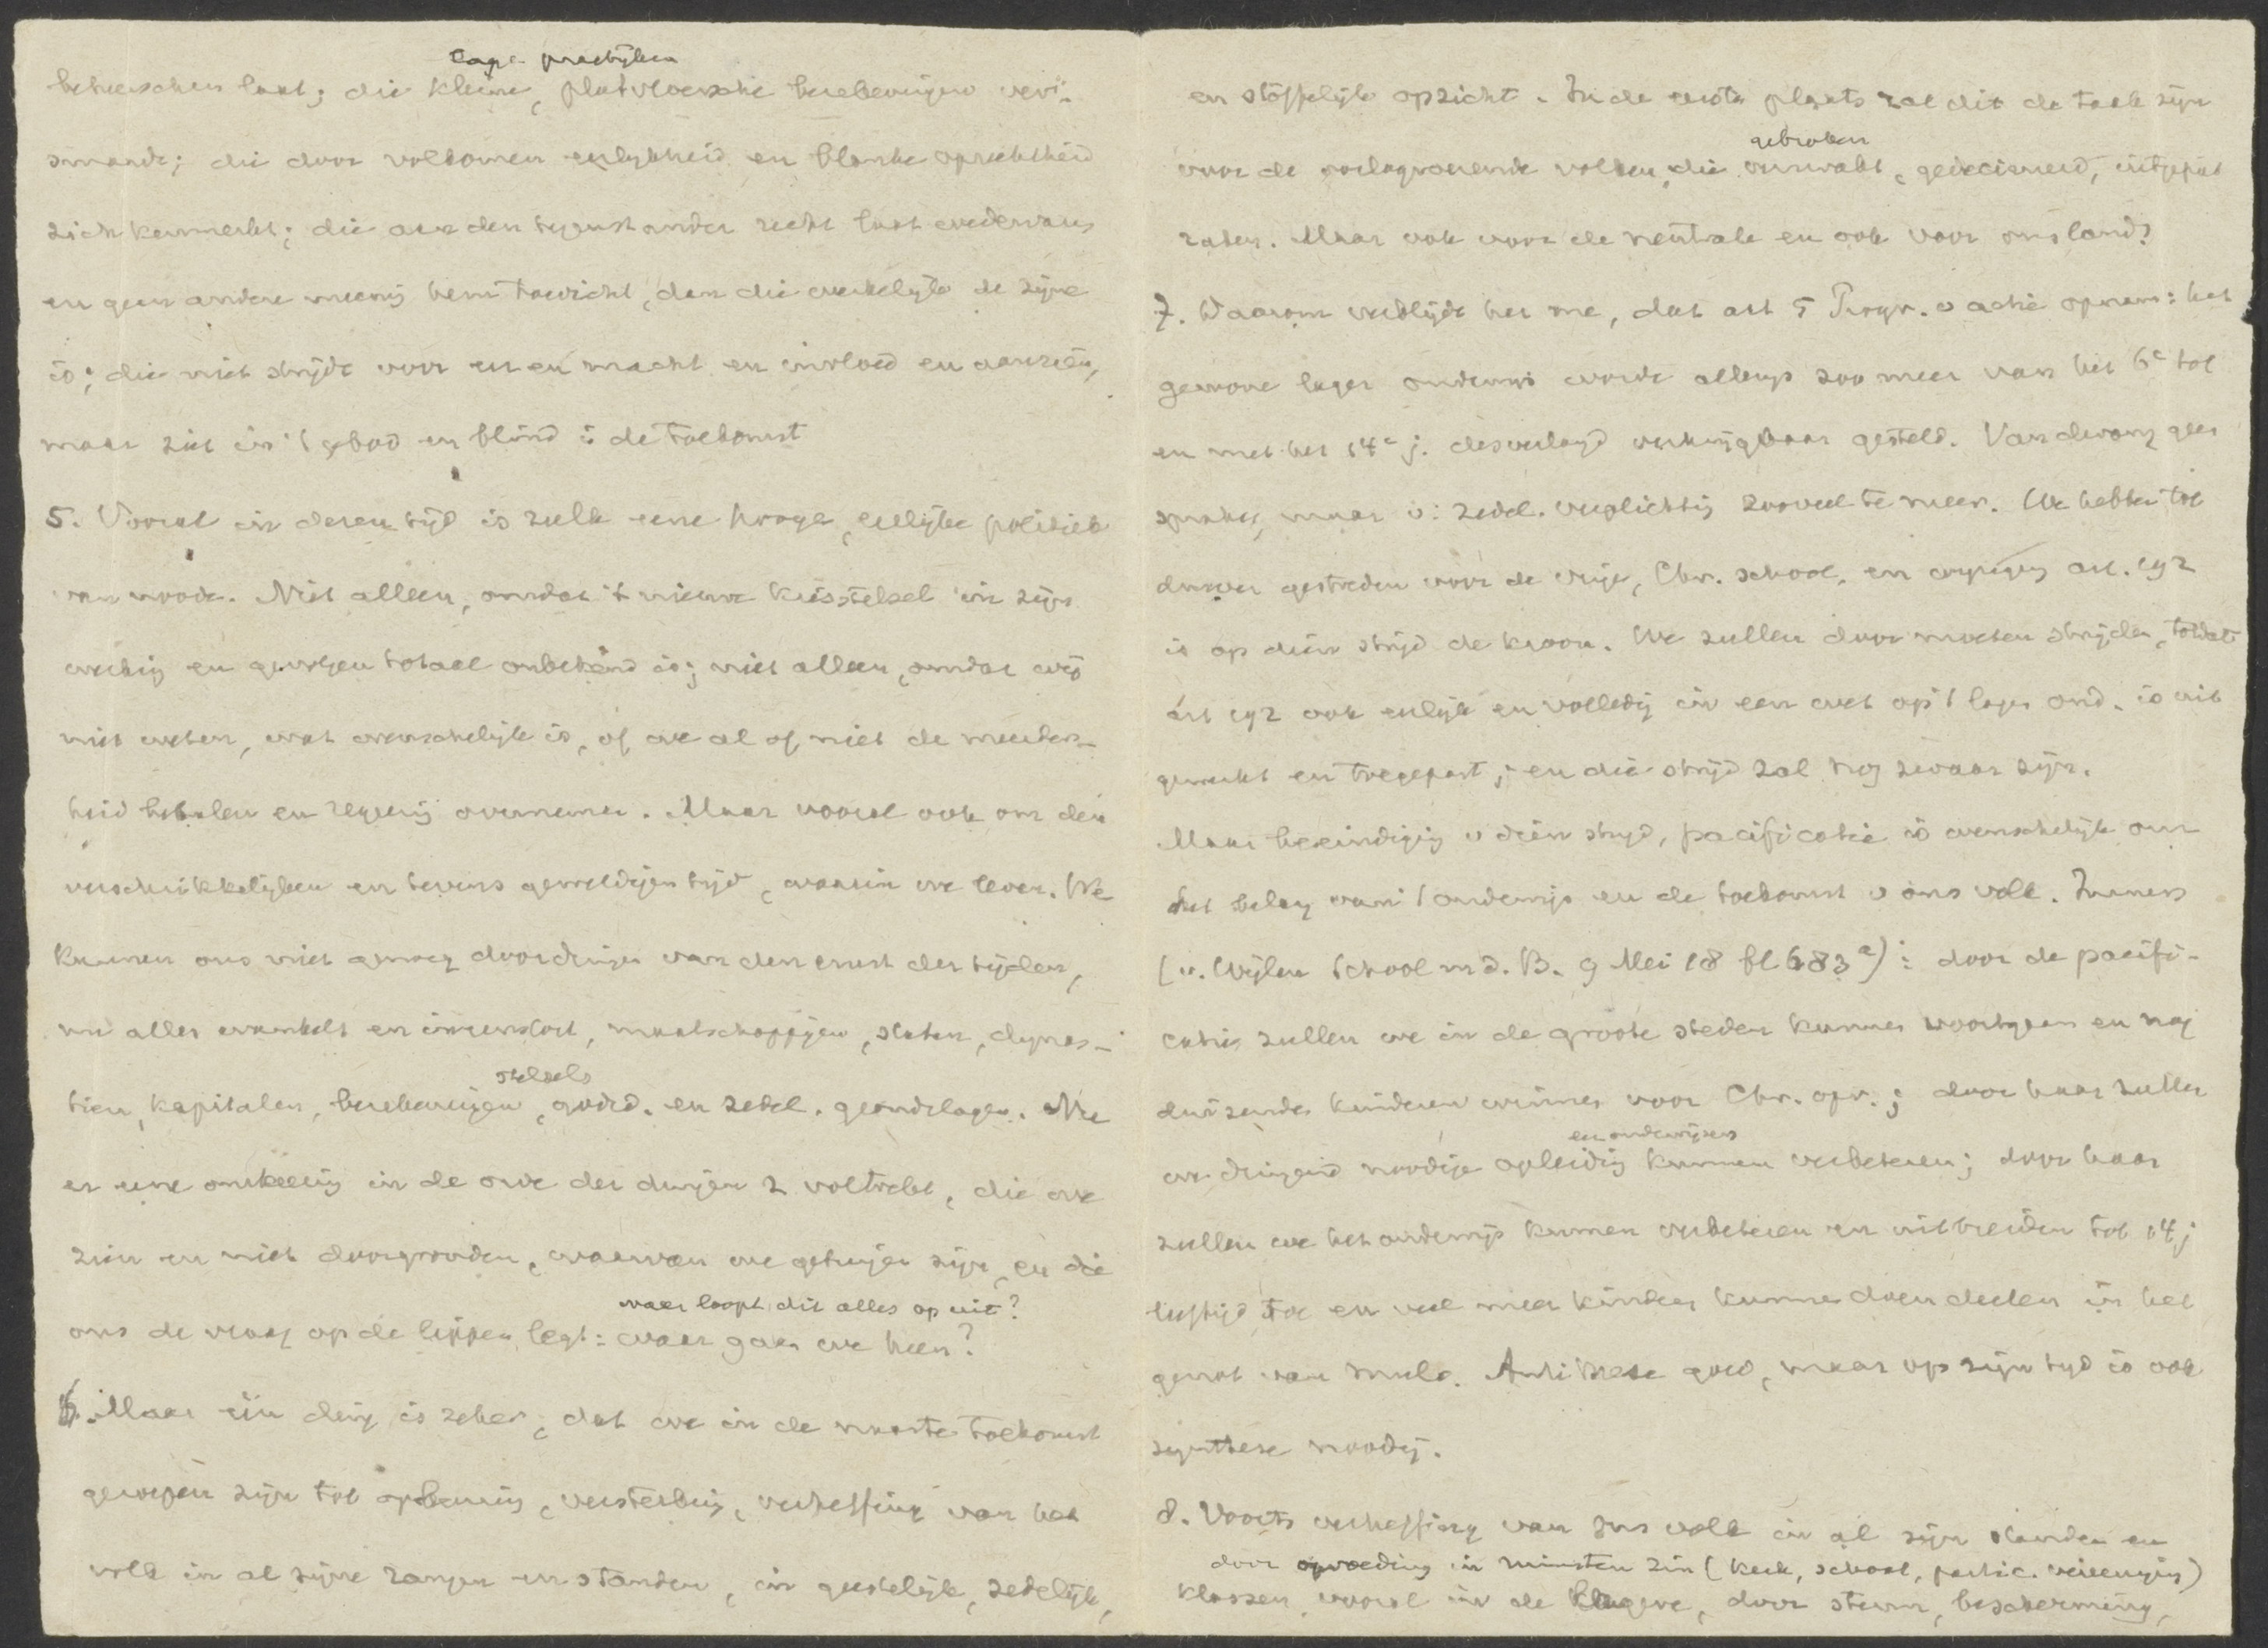 lage practijken
beheerschen laat; die kleine, platvloersche berekeningen ver-
smaadt; die door volkomen eerlijkheid en blanke oprechtheid
zich kenmerkt; die aan den tegenstander recht laat wedervaren
en geen andere meening hem toedicht, dan die werkelijk de zijne
is; die niet strijdt voor eer en macht en invloed en aanzien,
maar ziet in 't gebod en blind is de toekomst
5. Vooral in dezen tijd is zulk eene hooge, eerlijke politiek
van noode. Niet alleen, omdat 't nieuwe kiesstelsel in zijn
werking en gevolgen totaal onbekend is; niet alleen, omdat wij
niet weten, wat wenschelijk is, of we al of niet de meerder-
heid behalen en regeering overnemen. Maar vooral ook om den
verschrikkelijken en tevens geweldigen tijd, waarin we leven. We
kunnen ons niet genoeg doordringen van den ernst der tijden,
nu alles wankelt en ineenstort, maatschappijen, staten, dynas-
stelsels
tieën, kapitalen, berekeningen, godsd. en zedel. grondslagen. Nu
er eene omkeering in de orde der dingen z. voltrekt, die we
zien en niet doorgronden, waarvan we getuigen zijn, en die
waar loopt dit alles op uit?
ons de vraag op de lippen legt: waar gaan we heen?
6. Maar één ding is zeker, dat we in de naaste toekomst
geroepen zijn tot opbouwing, versterking, verheffing van het
volk in al zijne rangen en standen, in geestelijk, zedelijk,
en stoffelijk opzicht. In de eerste plaats zal dit de taak zijn
gebroken
voor de oorlogvoerende volken, die verzwakt, gedecimeerd, uitgeput
raken. Maar ook voor de neutrale en ook voor ons land.
7. Daarom verblijdt het me, dat art 5 Progr. v actie opnam: het
gewone lager onderwijs worde allengs zoo meer van het 6e tot
en met het 14e j. desverlangd verkrijgbaar gesteld. Van dwang geen
sprake, maar v. zedel. verplichting zooveel te meer. We hebben tot
dusver gestreden voor de vrije, Chr. school, en wijziging art. 192
is op dien strijd de kroon. We zullen door moeten strijden, totdat
art 192 ook eerlijk en volledig in een wet op 't lager ond. is uit
gewerkt en toegepast; en die strijd zal nog zwaar zijn.
Maar beëindiging v dien strijd, pacificatie is wenschelijk om
het belang van 't onderwijs en de toekomst v ons volk. Immers
(v. Wijlen School m d. B. 9 Mei 18 bl 683a): door de pacifi-
catie zullen we in de groote steden kunnen voortgaan en nog
duizenden kinderen winnen voor Chr. opv.; door haar zullen
en onderwijzers
we dringend noodige opleiding kunnen verbeteren; door haar
zullen we het onderwijs kunnen verbeteren en uitbreiden tot 14j
leeftijd toe en veel meer kinderen kunnen doen deelen in het
genot van mulo. Antithese goed, maar op zijn tijd is ook
synthese noodig.
8. Voorts verheffing van ons volk in al zijn standen en
door opvoeding in ruimsten zin (kerk, school, partic. vereeniging)
klassen, vooral in de lagere, door steun, bescherming,